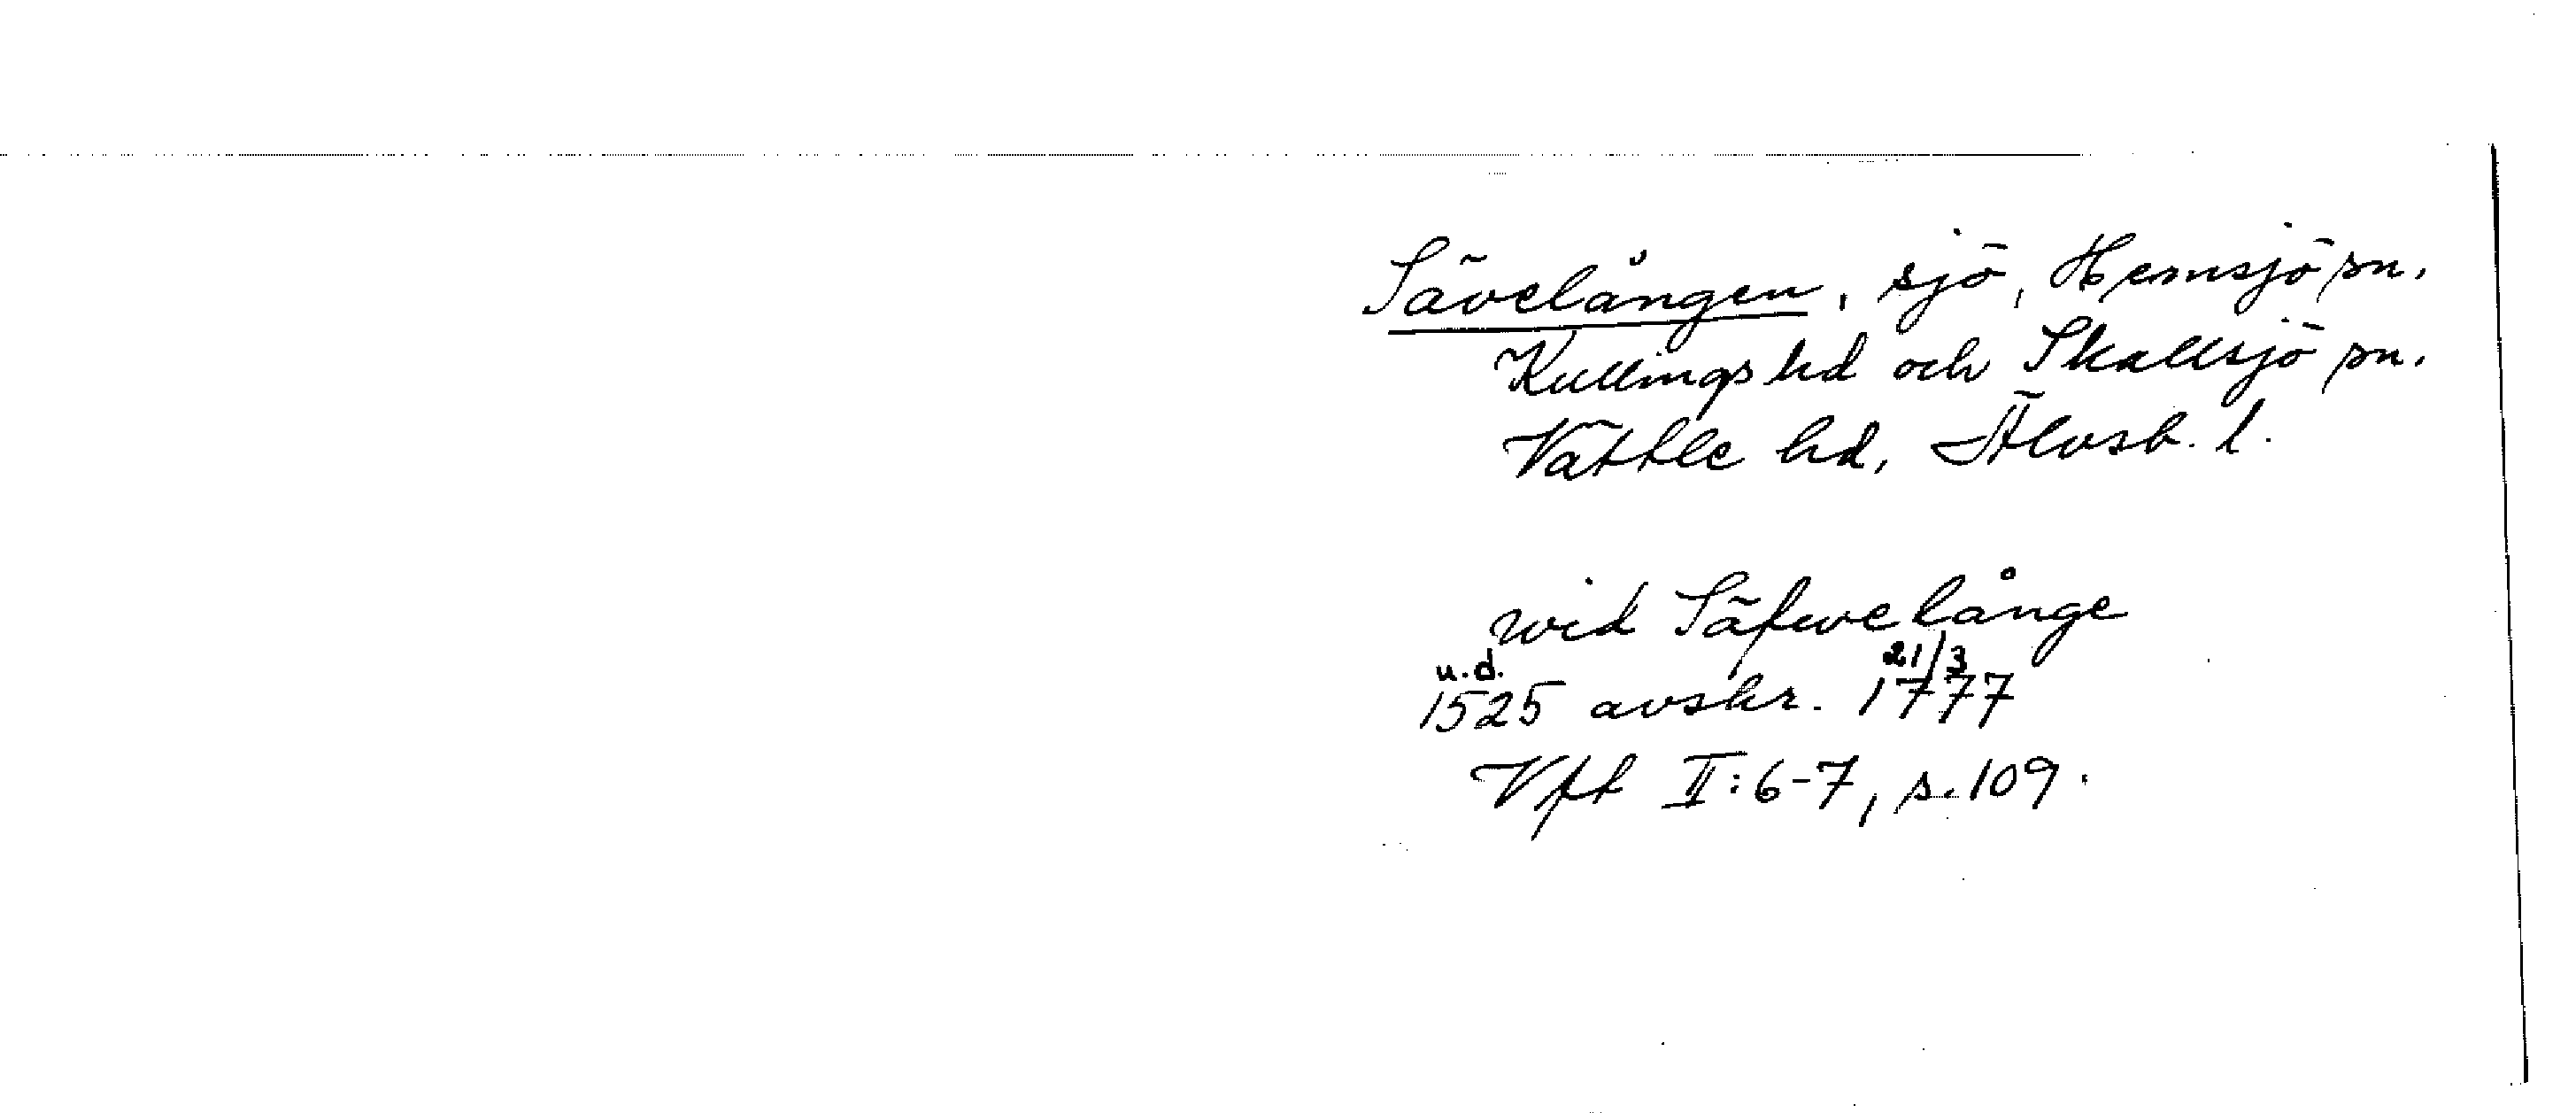 Sävelången, sjö, Hemsjö sn.
Kullings hd och Skallsjö sn.
Vättle hd, Älvsb. l.
wid Säfwelånge
u.d. 21/3
1525 avskr. 1777
Vft II:6-7, s.109.